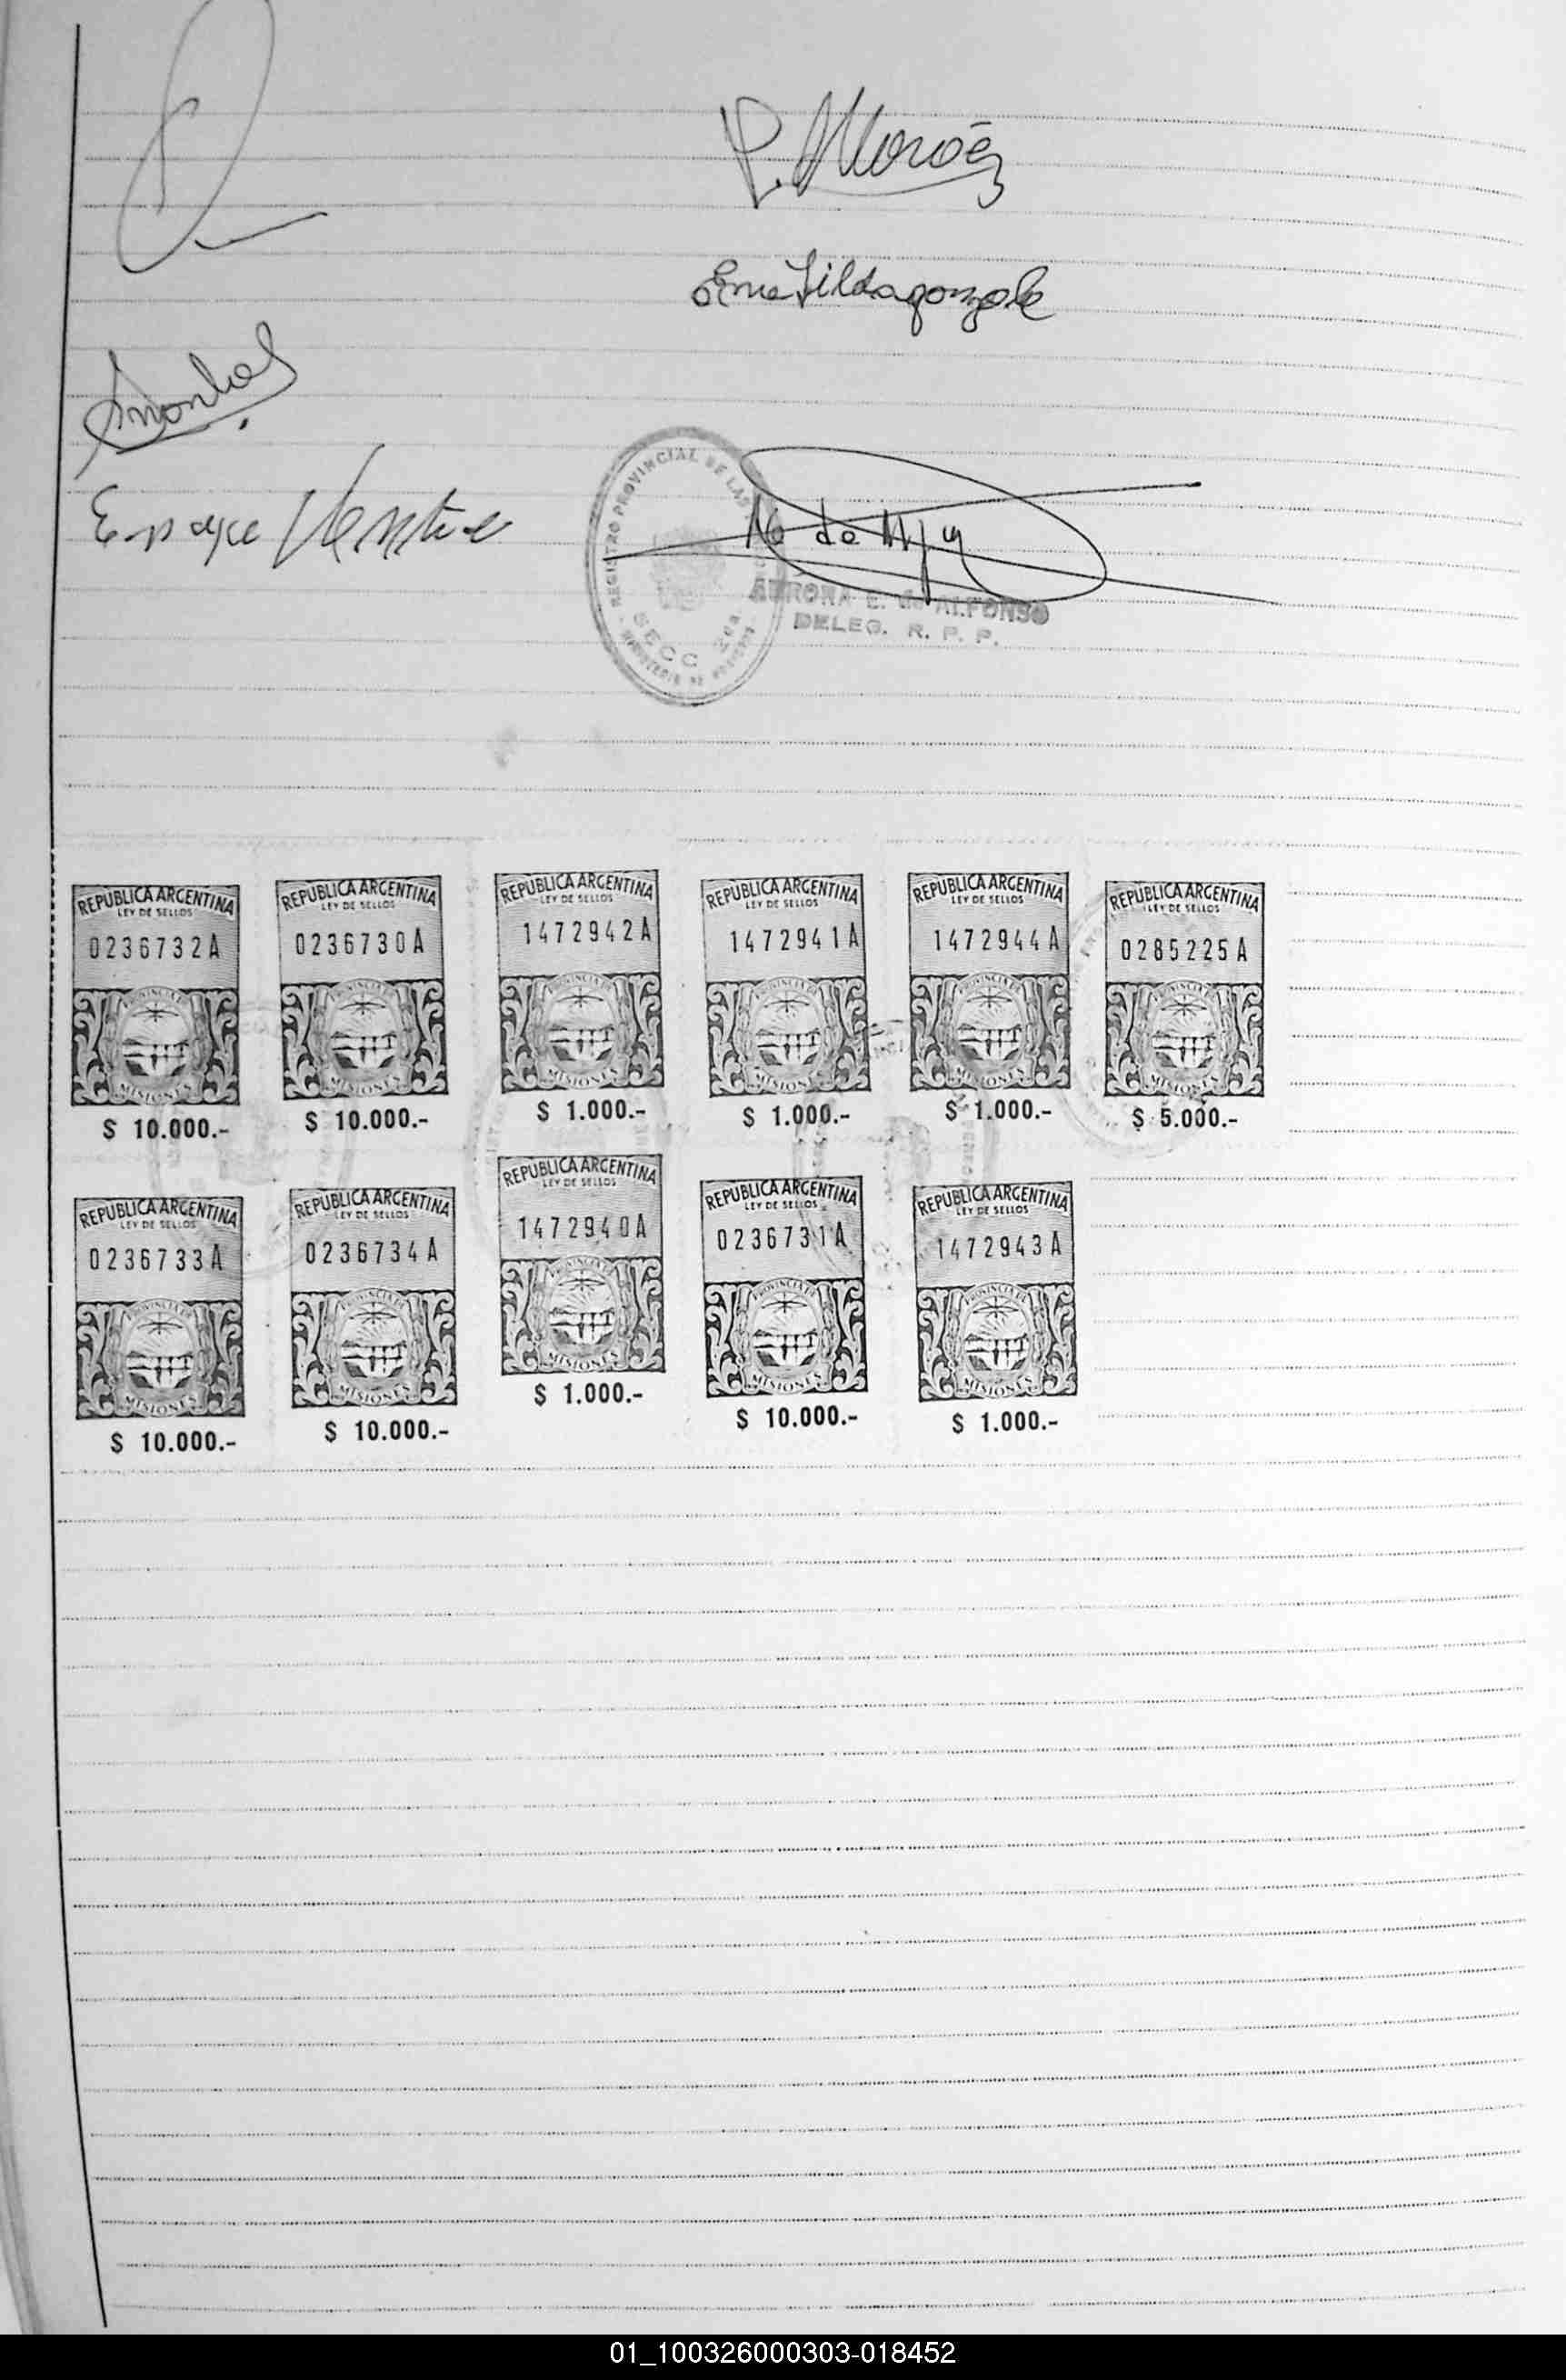 P. Moroz
Ematilda gonzale
REGISTRO PROVINCIAL DE LAS
SECC 2da
AURORA E. de ALFONSO
DELEG. R. P. P.
REPUBLICA ARGENTINA REPUBLICA ARGENTINA REPUBLICA ARGENTINA REPUBLICA ARGENTINA REPUBLICA ARGENTINA REPUBLICA ARGENTINA
LEY DE SELLOS LEY DE SELLOS LEY DE SELLOS LEY DE SELLOS LEY DE SELLOS LEY DE SELLOS
0236732A 0236730A 1472942A 1472941A 1472944A 0285225A
PROVINCIA DE PROVINCIA DE PROVINCIA DE PROVINCIA DE PROVINCIA DE PROVINCIA DE
MISIONES MISIONES MISIONES MISIONES MISIONES MISIONES
$ 10.000.- $ 10.000.- $ 1.000.- $ 1.000.- $ 1.000.- $ 5.000.-
REPUBLICA ARGENTINA REPUBLICA ARGENTINA REPUBLICA ARGENTINA REPUBLICA ARGENTINA REPUBLICA ARGENTINA
LEY DE SELLOS LEY DE SELLOS LEY DE SELLOS LEY DE SELLOS LEY DE SELLOS
0236733A 0236734A 1472940A 0236731A 1472943A
PROVINCIA DE PROVINCIA DE PROVINCIA DE PROVINCIA DE PROVINCIA DE
MISIONES MISIONES MISIONES MISIONES MISIONES
$ 10.000.- $ 10.000.- $ 1.000.- $ 10.000.- $ 1.000.-
01_100326000303-018452